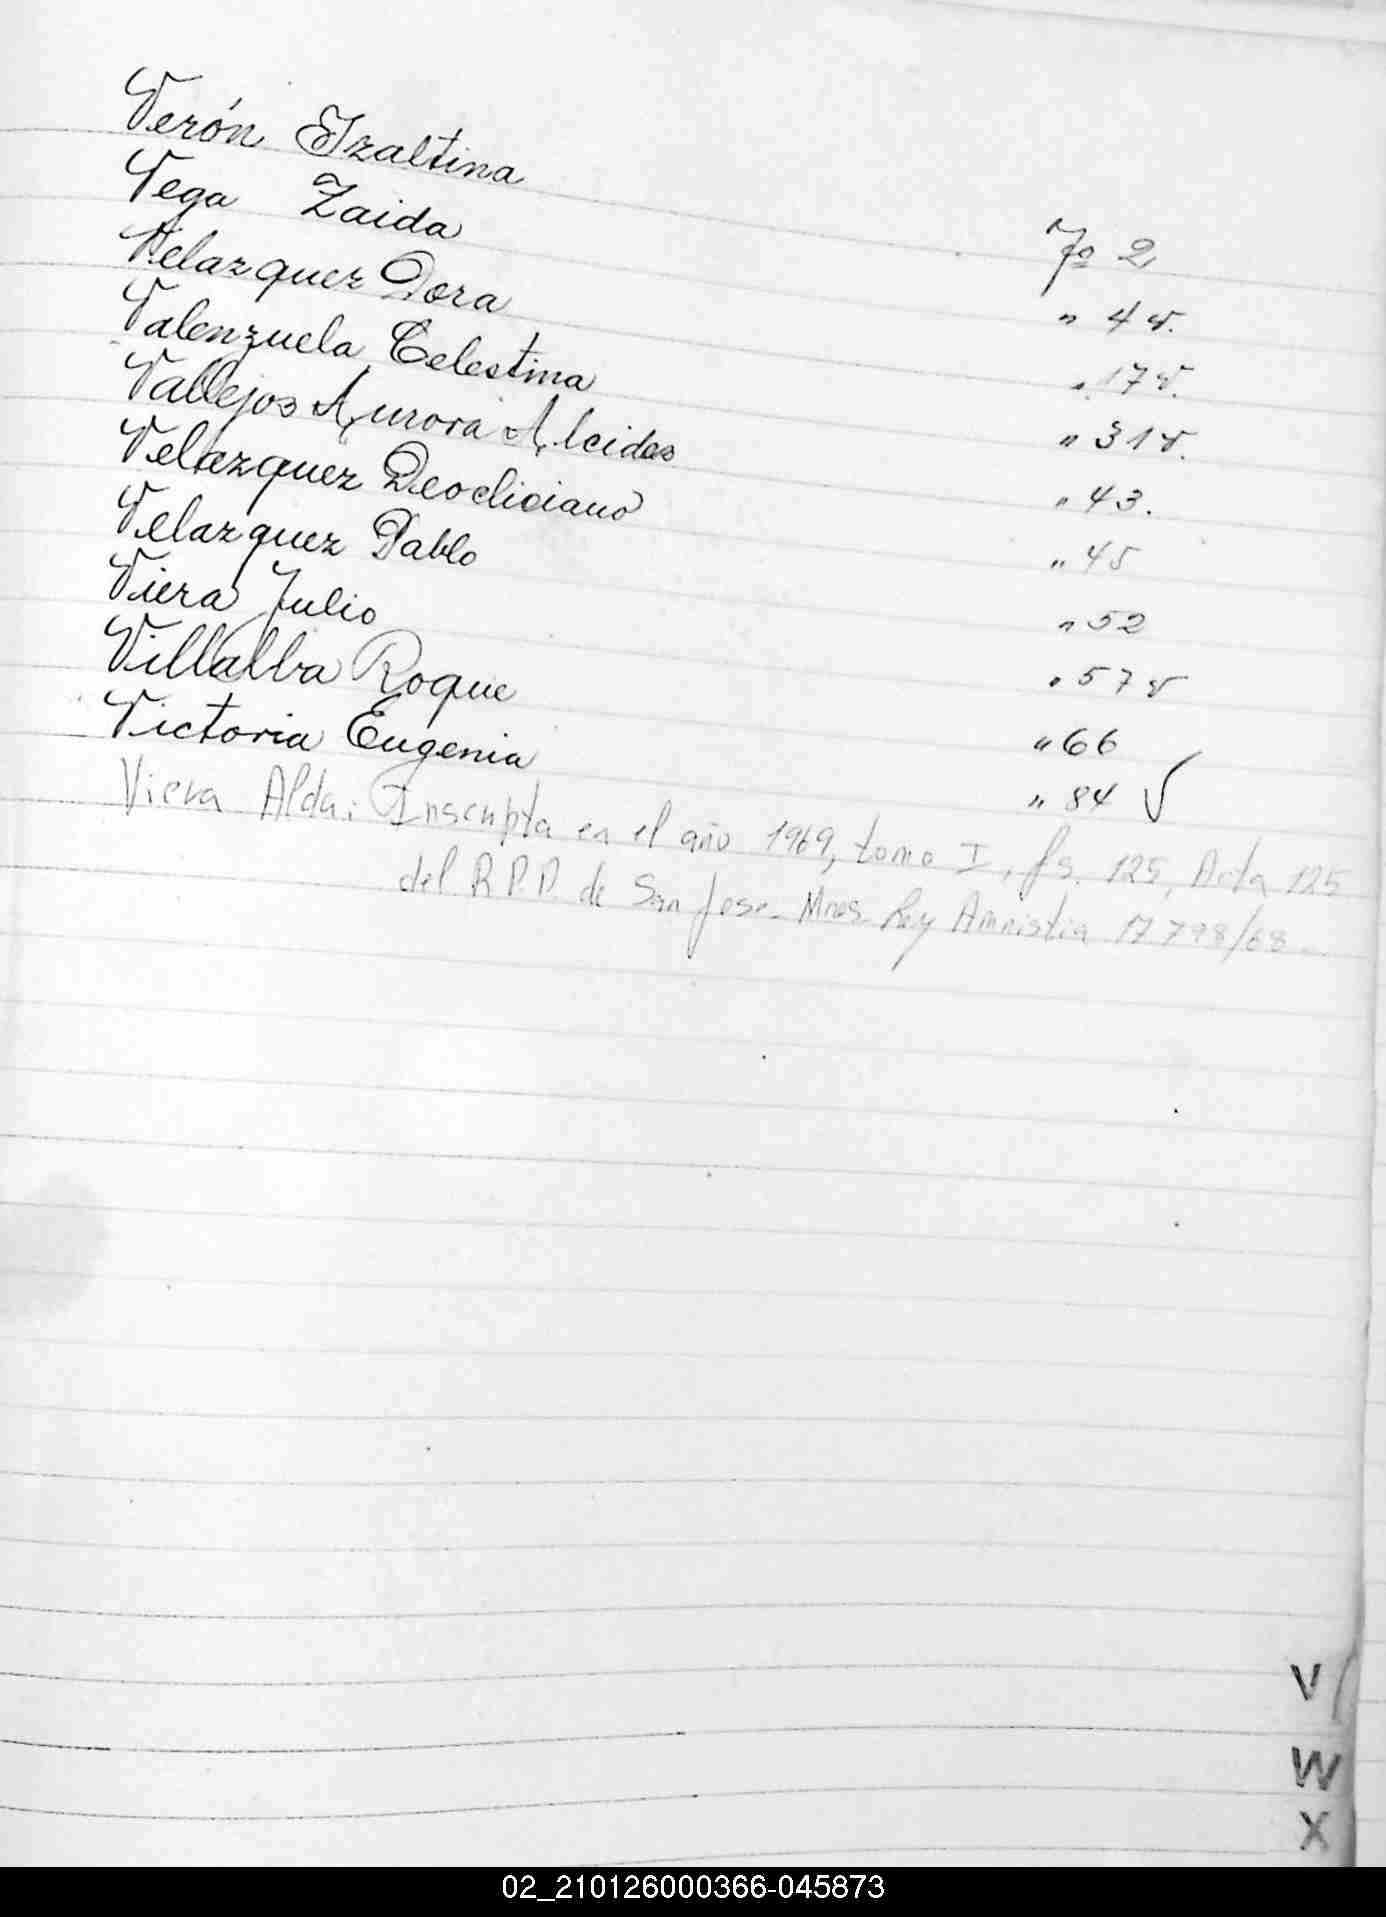 Verón Izaltina fo 2
Vega Zaida " 4 v.
Velazquez Dora " 17 v.
Valenzuela Celestina " 31 v.
Vallejos Aurora Alcides " 43.
Velazquez Deocliciano " 45
Velazquez Pablo " 52
Viera Julio " 57 v
Villalba Roque " 66
Victoria Eugenia " 84 √
Viera Alda: Inscripta en el año 1969, tomo I, fs. 125, Acta 125
del R.P.P. de San Jose - Mnes. Ley Amnistia 17798/68.
V
W
X
02_210126000366-045873